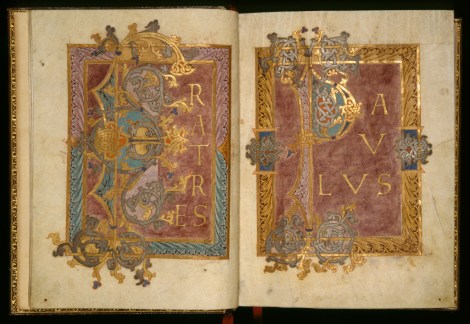 F R
A
T
R
ES
P A
V
LVS